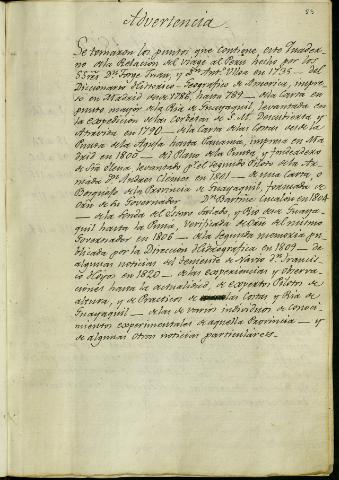 53
Advertencia
Se tomaron los puntos que contiene este Quader-
no de la Relacion del viage al Peru hecho por los
SSres. Dn. Jorge Juan, y Dn. Ant. Ulloa en 1735 — del
Diccionario Historico-Geografico de America, impre-
so en Madrid desde 1786, hasta 1789 — de la Carta en
punto mayor de la Ria de Guayaquil, levantada en
la expedicion de las Corbetas de S. M. Descubierta y
Atrevida en 1790 — de la Carta de las Costas desde la
Punta de la Aguja hasta Panamá, impresa en Ma-
drid en 1800 — del Plano de la Punta y fondeadero
de Sta. Elena, levantado pr. el segundo Piloto de la Ar-
mada Dn. Andres
en 1801 — de una Carta, o
Bosquejo de la Provincia de Guayaquil, formada de
Orn. de su Governador Dn. Bartme. Cucalon en 1804
— de la Sonda del Estero Salado, y Rio de Guaya-
quil hasta la Puná, verificada de Orn. del mismo
Governador en 1806 — de la segunda memoria pu-
blicada por la Direccion de Hidrografia en 1809 — de
algunas noticias del teniente de Navio Dn. Francis-
co
en 1820 — de las experiencias y observa-
ciones hasta la actualidad, de expertos Pilotos de
altura, y de Practicos de las Costas y Ria de
Guayaquil — de las de varios individuos de conoci-
mientos experimentales de aquella Provincia — y
de algunas otras noticias particulares.